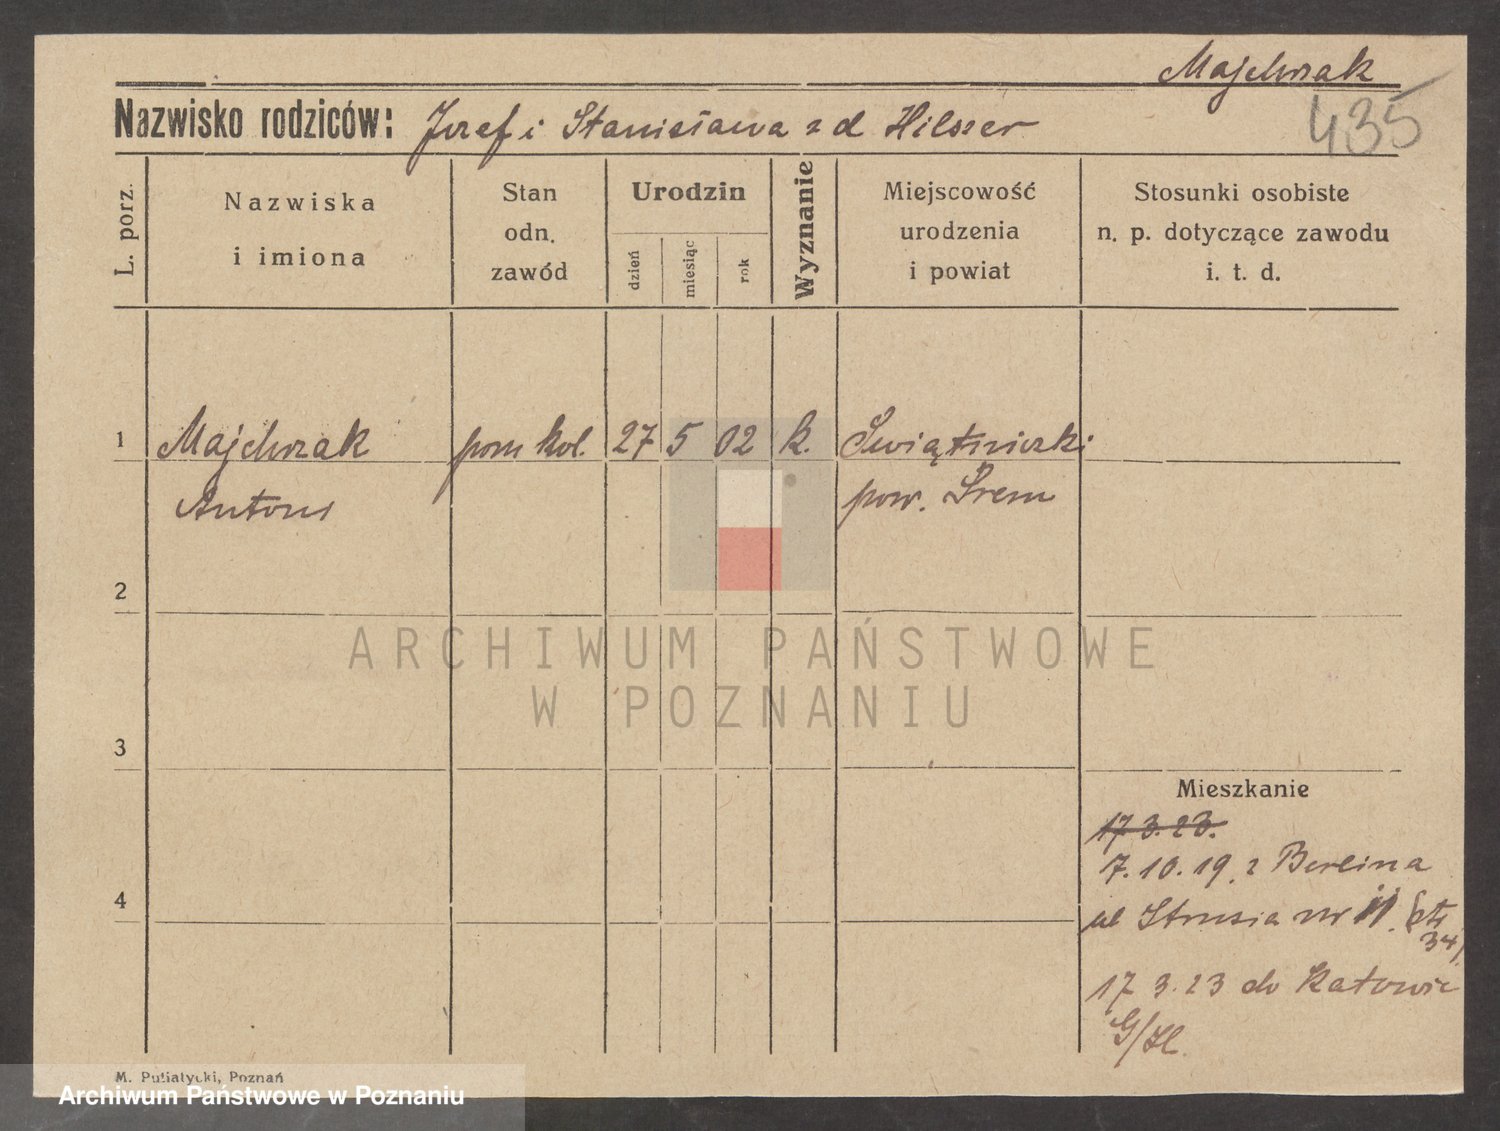 Majchrzak
435
Nazwisko rodziców: Józef i Stanisława z d Hilszer
L. porz.
Nazwiska
i imiona
Stan
odn.
zawód
Urodzin
dzień
miesiąc
rok
Wyznanie
Miejscowość
urodzenia
i powiat
Stosunki osobiste
n. p. dotyczące zawodu
i. t. d.
1 Majchrzak pom kol. 27 5 02 k. Świątniczki
Antoni pow. Śrem
2
ARCHIWUM PAŃSTWOWE
W POZNANIU
3
Mieszkanie
17 3. 23.
7. 10. 19. z Berlina
4
ul Strusia nr 11. (ptr
34)
17 3. 23 do Katowic
G/Śl.
M. Putiatycki, Poznań
Archiwum Państwowe w Poznaniu